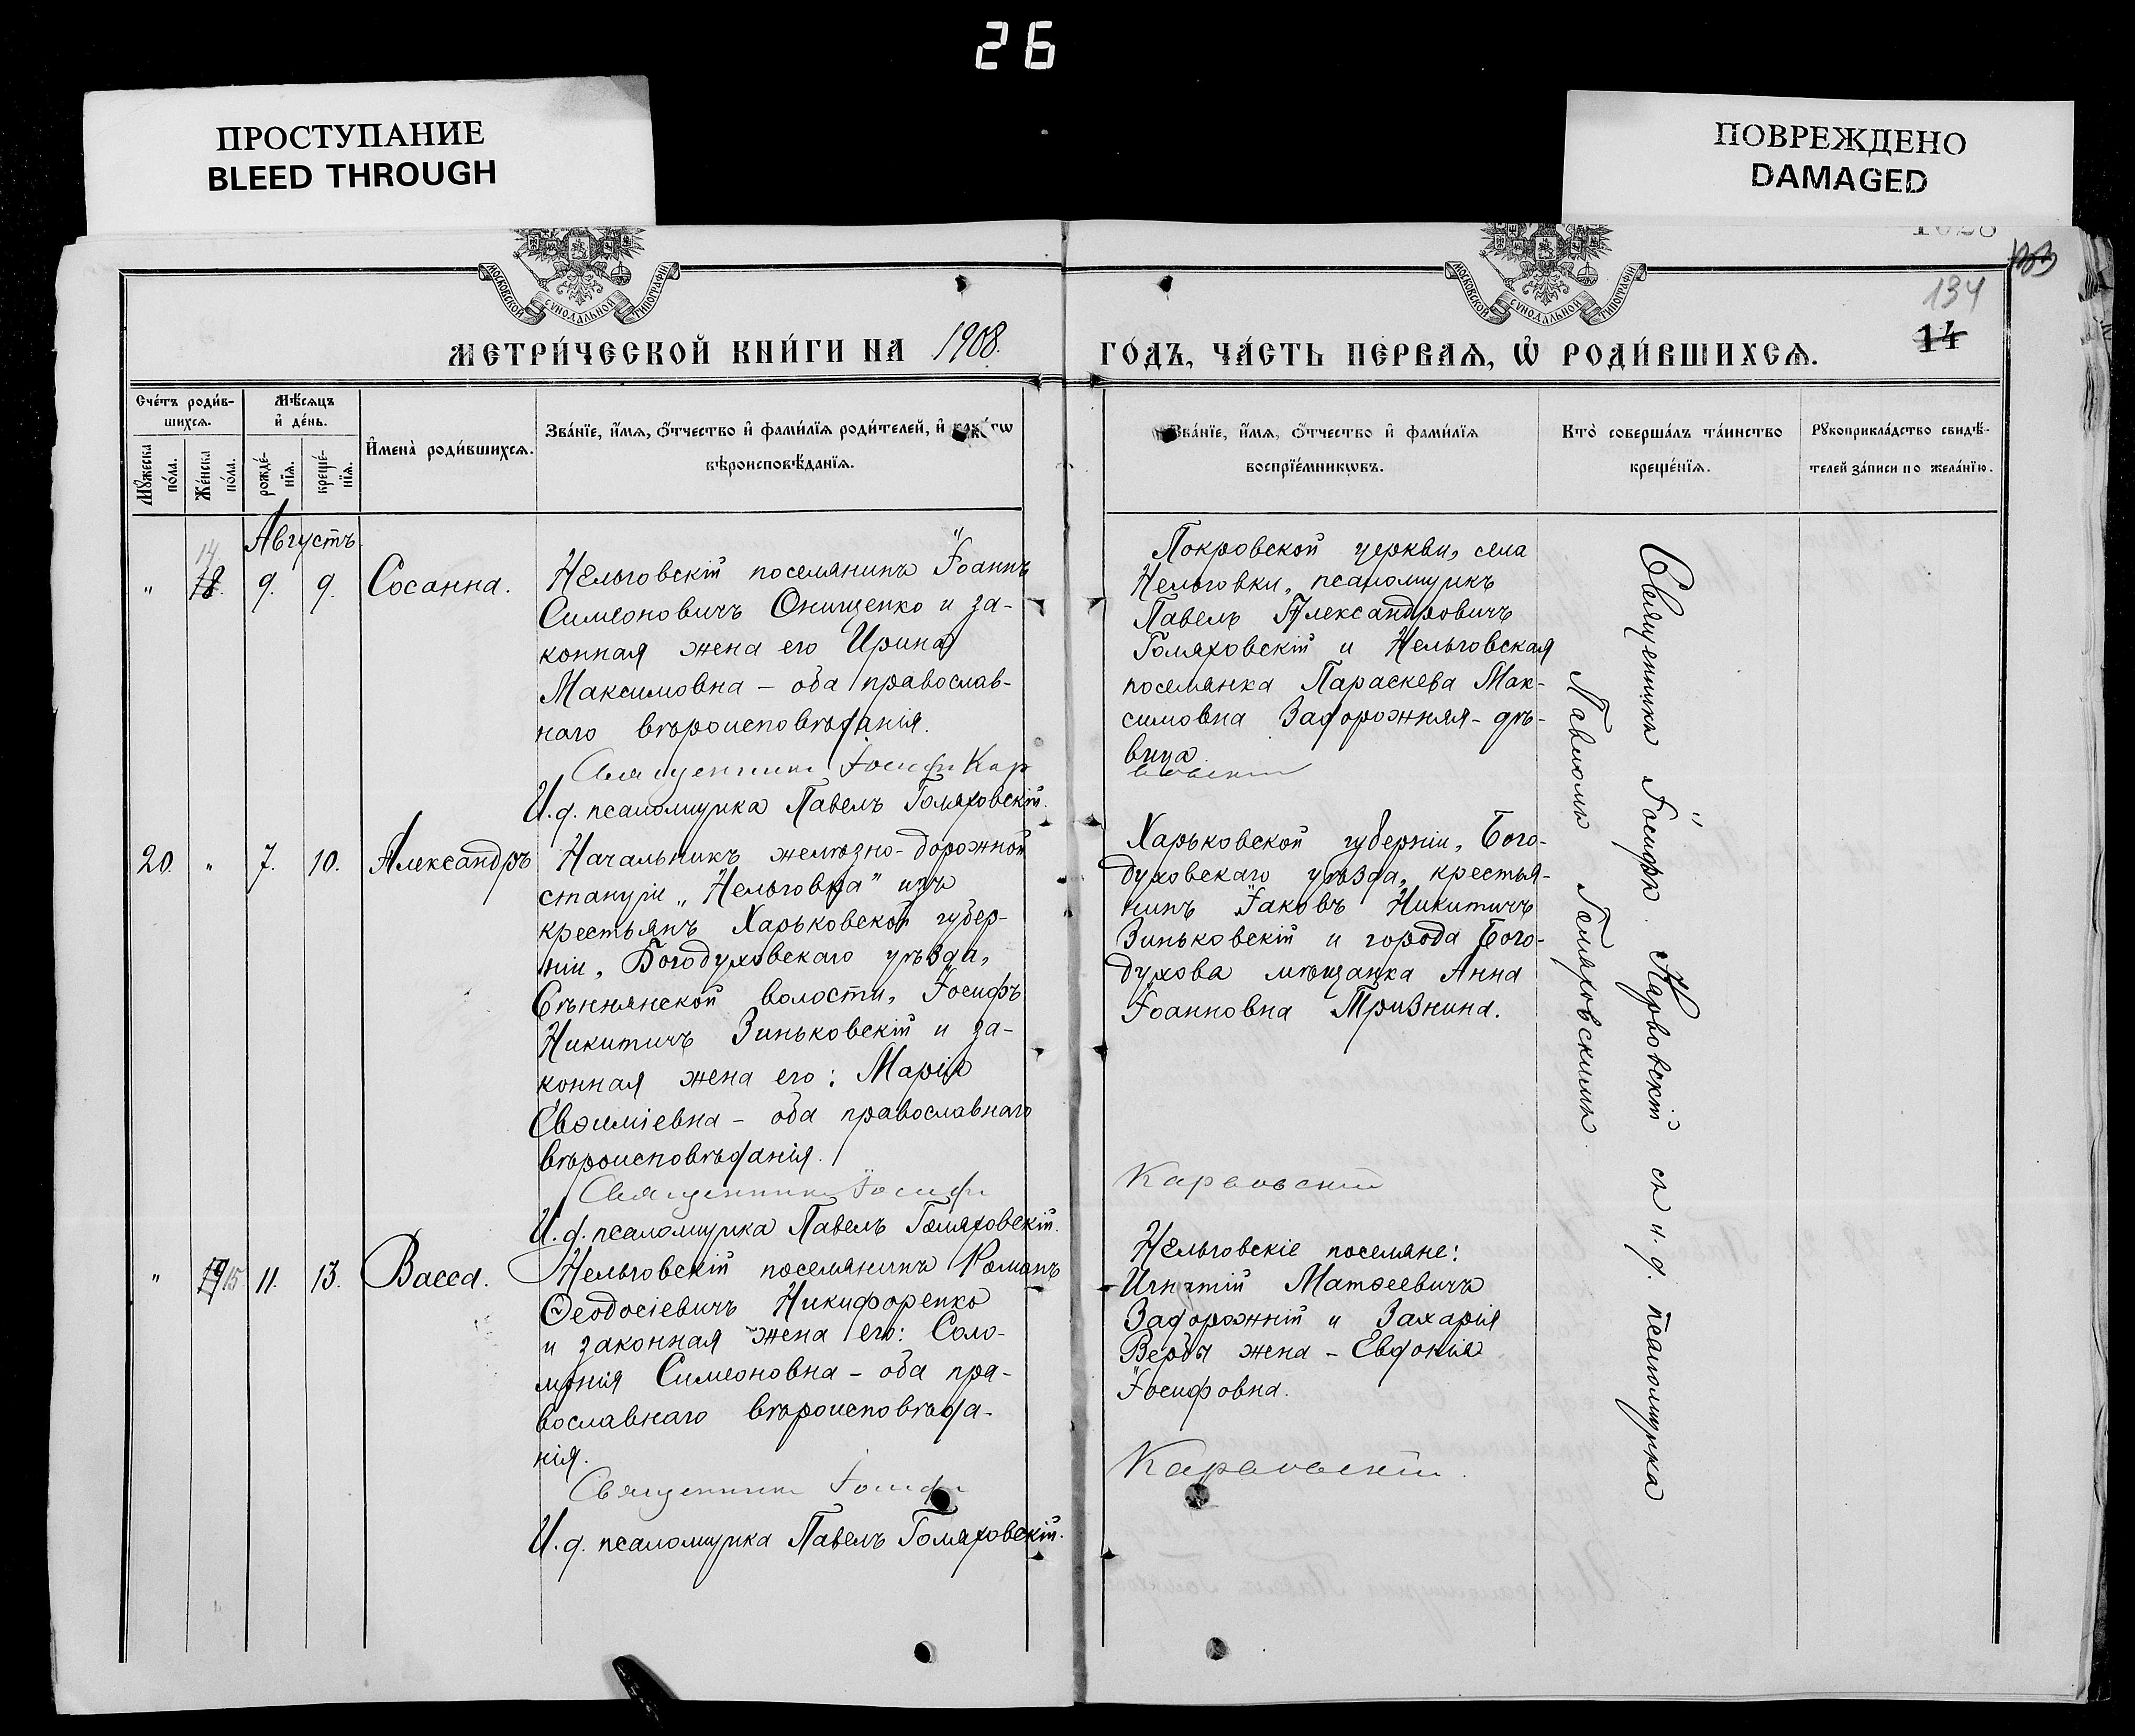 26
ПРОСТУПАНИЕ
BLEED THROUGH
ПОВРЕЖДЕНО
DAMAGED
МОСКОВСКОЙ СѴНОДАЛЬНОЙ ТИПОГРАФІИ
МОСКОВСКОЙ СѴНОДАЛЬНОЙ ТИПОГРАФІИ
134
14
МЕТРИ́ЧЕСКОЙ КНИ́ГИ НА 1908.
ГО́ДЪ, ЧА́СТЬ ПЕ́РВАѦ, Ѡ҆ РОДИ́ВШИХСѦ.
Сче́тъ роди́в-
шихсѧ.
Мꙋ́жеска по́ла.
Же́нска по́ла.
Мѣ́сѧцъ
и҆ де́нь.
рожде́-
нїѧ.
креще́-
нїѧ.
И҆мена̀ роди́вшихсѧ.
Зва́нїе, и҆́мѧ, ѻ҆́тчество и҆ фами́лїѧ роди́телей, и҆
вѣроисповѣ́данїѧ.
Зва́нїе, и҆́мѧ, ѻ҆́тчество и҆ фами́лїѧ
воспрїе́мникѡвъ.
Кто̀ соверша́лъ та́инство
креще́нїѧ.
Рꙋкоприкла́дство свидѣ́-
телей за́писи по жела́нїю.
Августъ.
" 14 18. 9. 9. Сосанна.
Нельговскій поселянинъ Іоаннъ
Симеоновичъ Онищенко и за-
конная жена его Ирина
Максимовна – оба православ-
наго вѣроисповѣданія.
Священникъ Іосифъ Кар
И.д. псаломщика Павелъ Голяховскій.
Покровской церкви, села
Нельговки, псаломщикъ
Павелъ Александровичъ
Голяховскій и Нельговская
поселянка Параскева Мак-
симовна Задорожняя – дѣ-
вица.
повскій
20. " 7. 10. Александръ
Начальникъ желѣзно-дорожной
станціи „Нельговка" изъ
крестьянъ Харьковской губер-
ніи, Богодуховскаго уѣзда,
Сѣннянской волости, Іосифъ
Никитичъ Зиньковскій и за-
конная жена его: Марія
Евѳиміевна – оба православнаго
вѣроисповѣданія.
Священникъ Іосифъ
И.д. псаломщика Павелъ Голяховскій.
Харьковской губерніи, Бого-
духовскаго уѣзда, крестья-
нинъ Іаковъ Никитичъ
Зиньковскій и города Бого-
духова мѣщанка Анна
Іоанновна Тризнина.
Карповскій
" 19 15 11. 13. Васса.
Нельговскій поселянинъ Романъ
Ѳеодосіевичъ Никифоренко
и законная жена его: Соло-
монія Симеоновна – оба пра-
вославнаго вѣроисповѣда-
нія.
Священникъ Іосифъ
И.д. псаломщика Павелъ Голяховскій.
Нельговскіе поселяне:
Игнатій Матѳеевичъ
Задорожній и Захарія
Вербы жена – Евдокія
Іосифовна.
Карповскій.
Священникъ Іосифъ Карповскій съ и. д. псаломщика
Павломъ Голяховскимъ